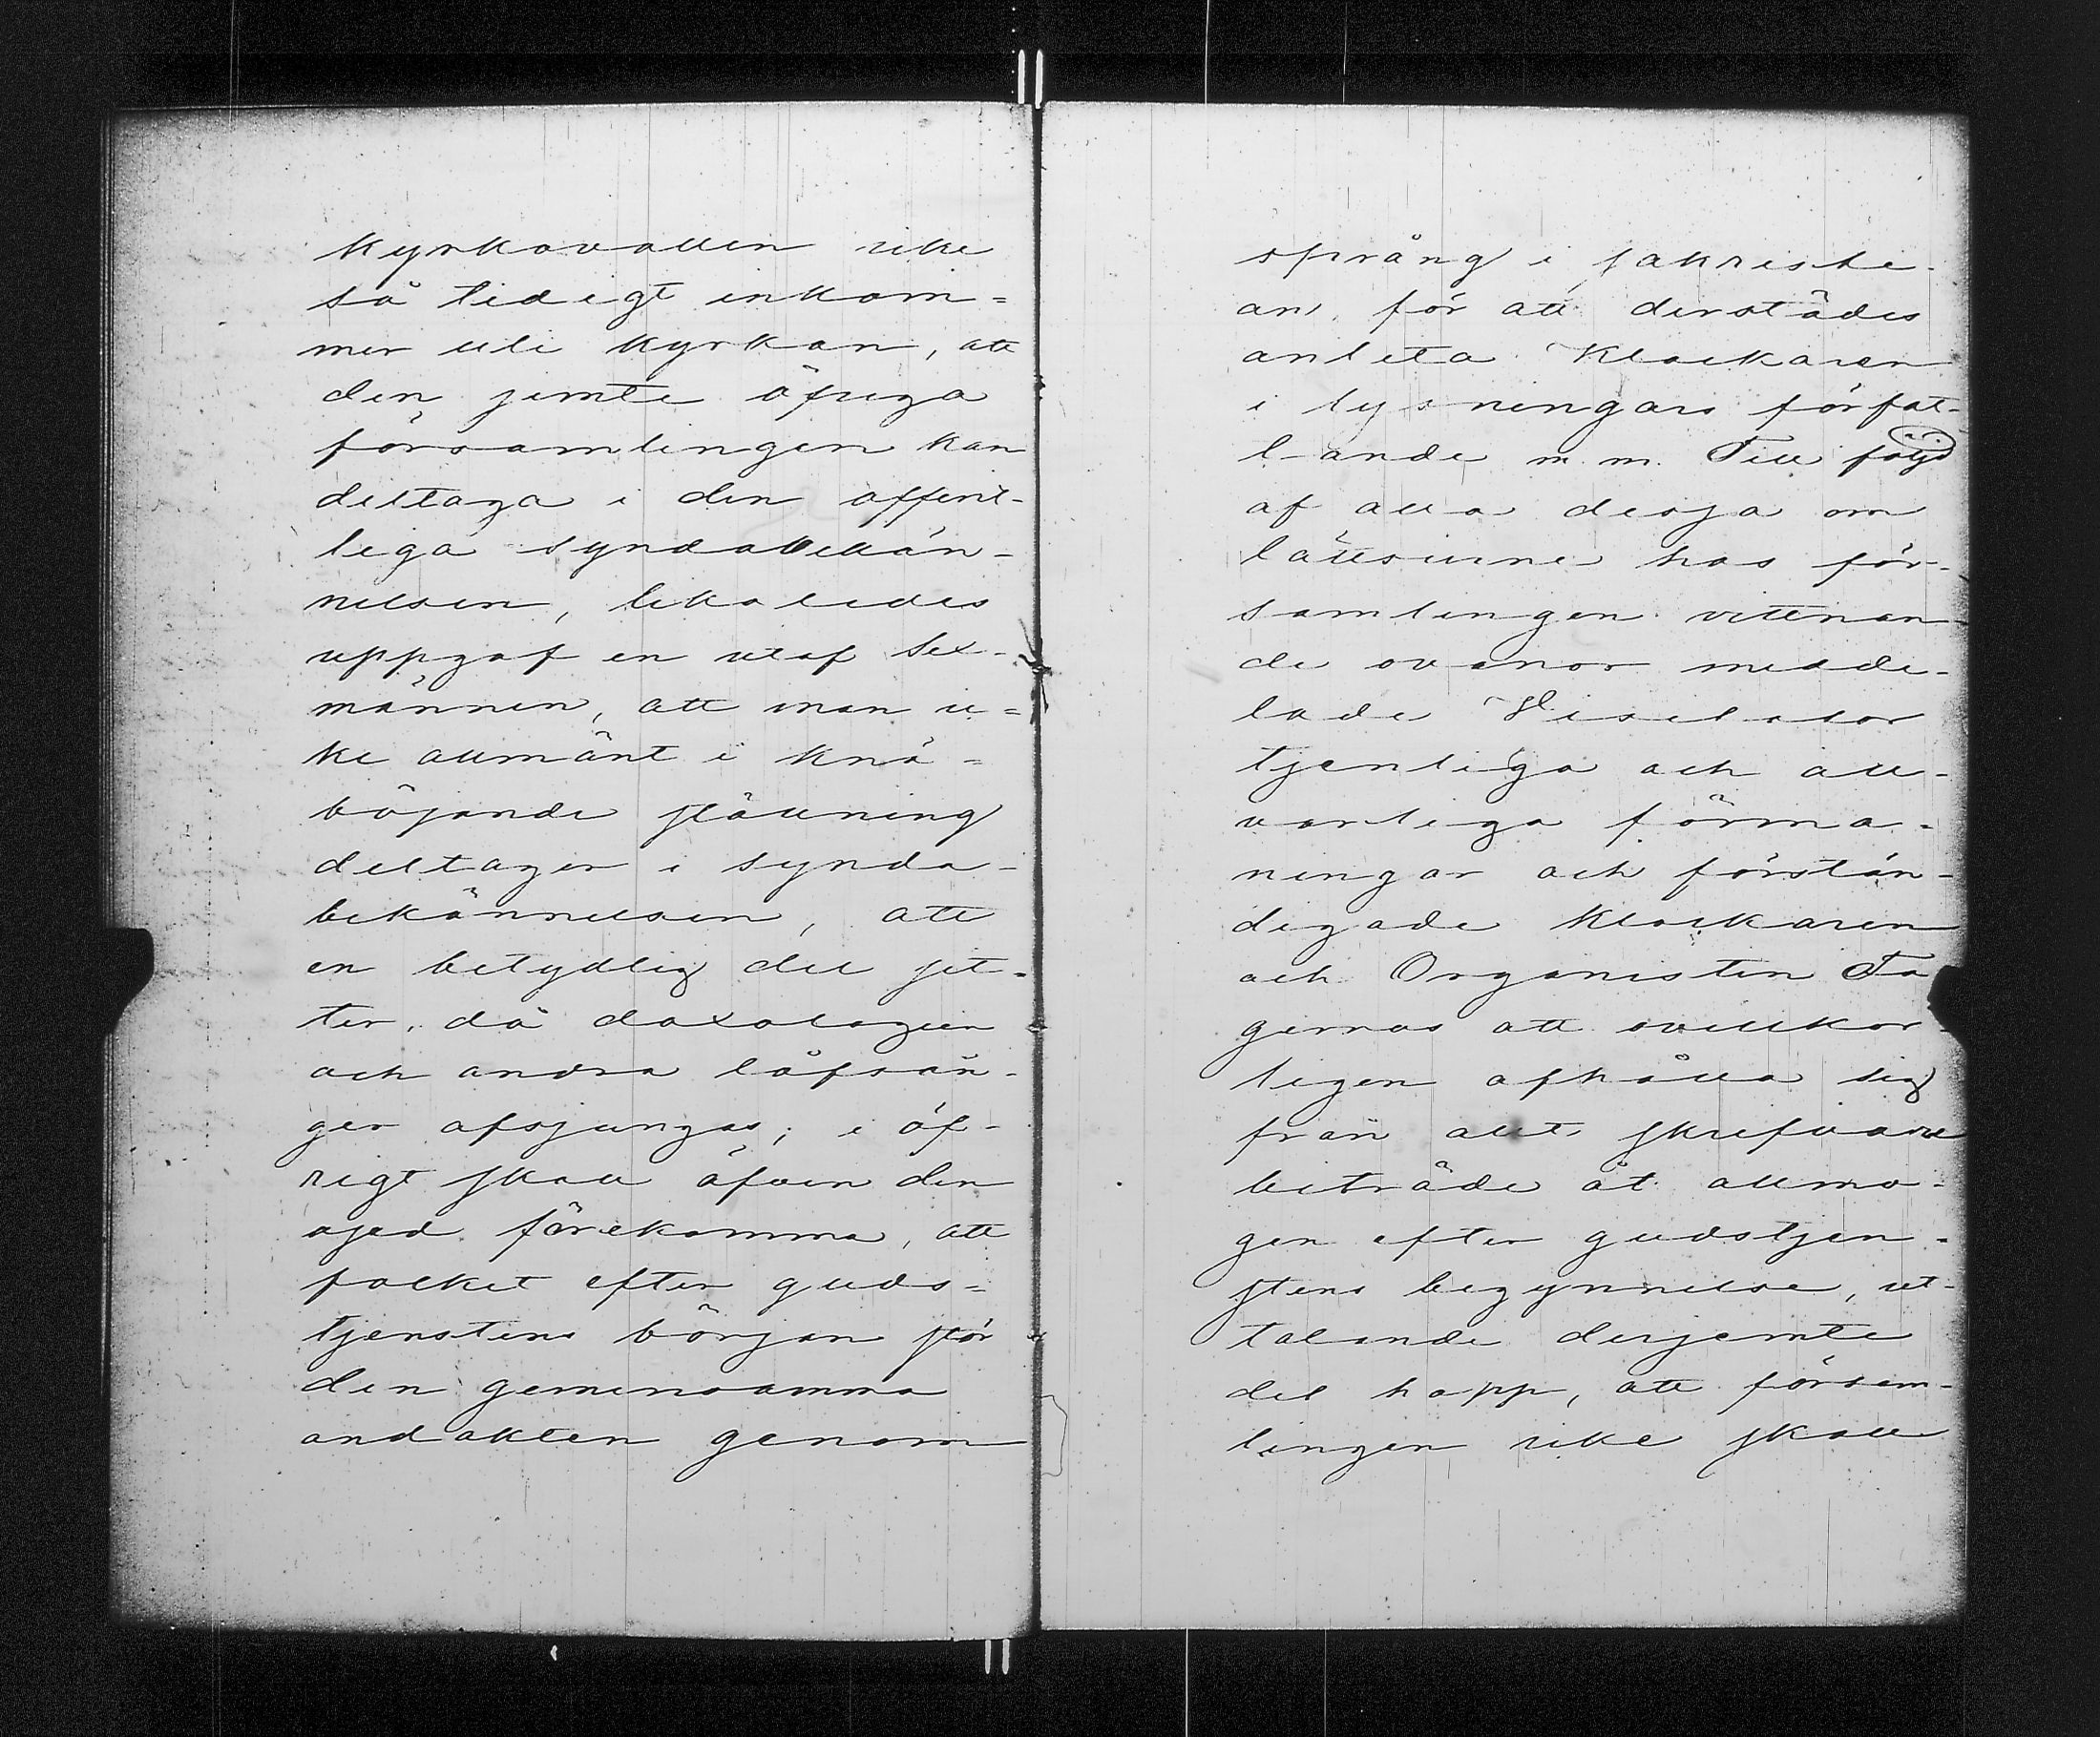 kyrkovallen icke
så tidigt inkom=
mer uti kyrkan, att
den jemte öfriga
församlingen kan
deltaga i den offent-
liga syndabekän-
nelsen, likaledes
uppgaf en utaf Sex-
männen, att man ic=
ke allmänt i knä=
böjande ställning
deltager i synda-
bekännelsen, att
en betydlig del sit-
ter, då doxologien
och andra låfsån-
ger afsjunges; i öf-
rigt skall äfven den
osed förekomma, att
folket efter guds=
tjenstens början stör
den gemensamma
andakten genom
språng i sakristi-
an, för att derstädes
anlita Klockaren
i lysningars förfat-
tande m. m. Till följd
af alla dessa om
lättsinne hos för-
samlingen vittnan-
de ovanor medde-
lade Visitator
tjenliga och all-
varliga förma-
ningar och förstän-
digade Klockaren
och Organisten Fa
gernäs att ovillkor-
ligen afhålla sig
från allt skrifvare
biträde åt allmo-
gen efter gudstjen-
stens begynnelse, ut-
talande derjemte
det hopp, att försam-
lingen icke skall